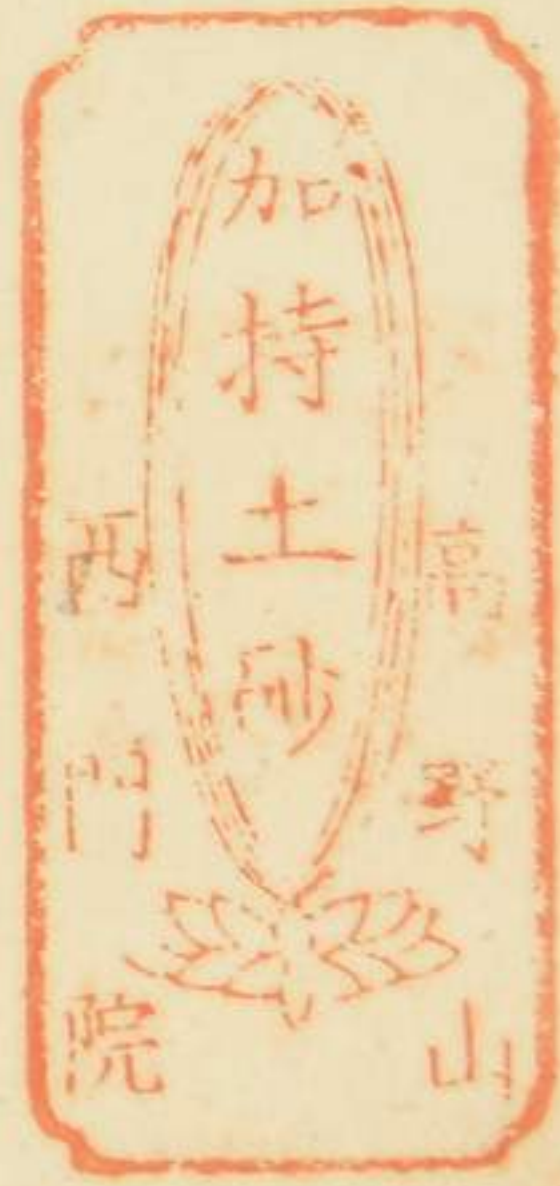 高野山
加持土砂
西門院